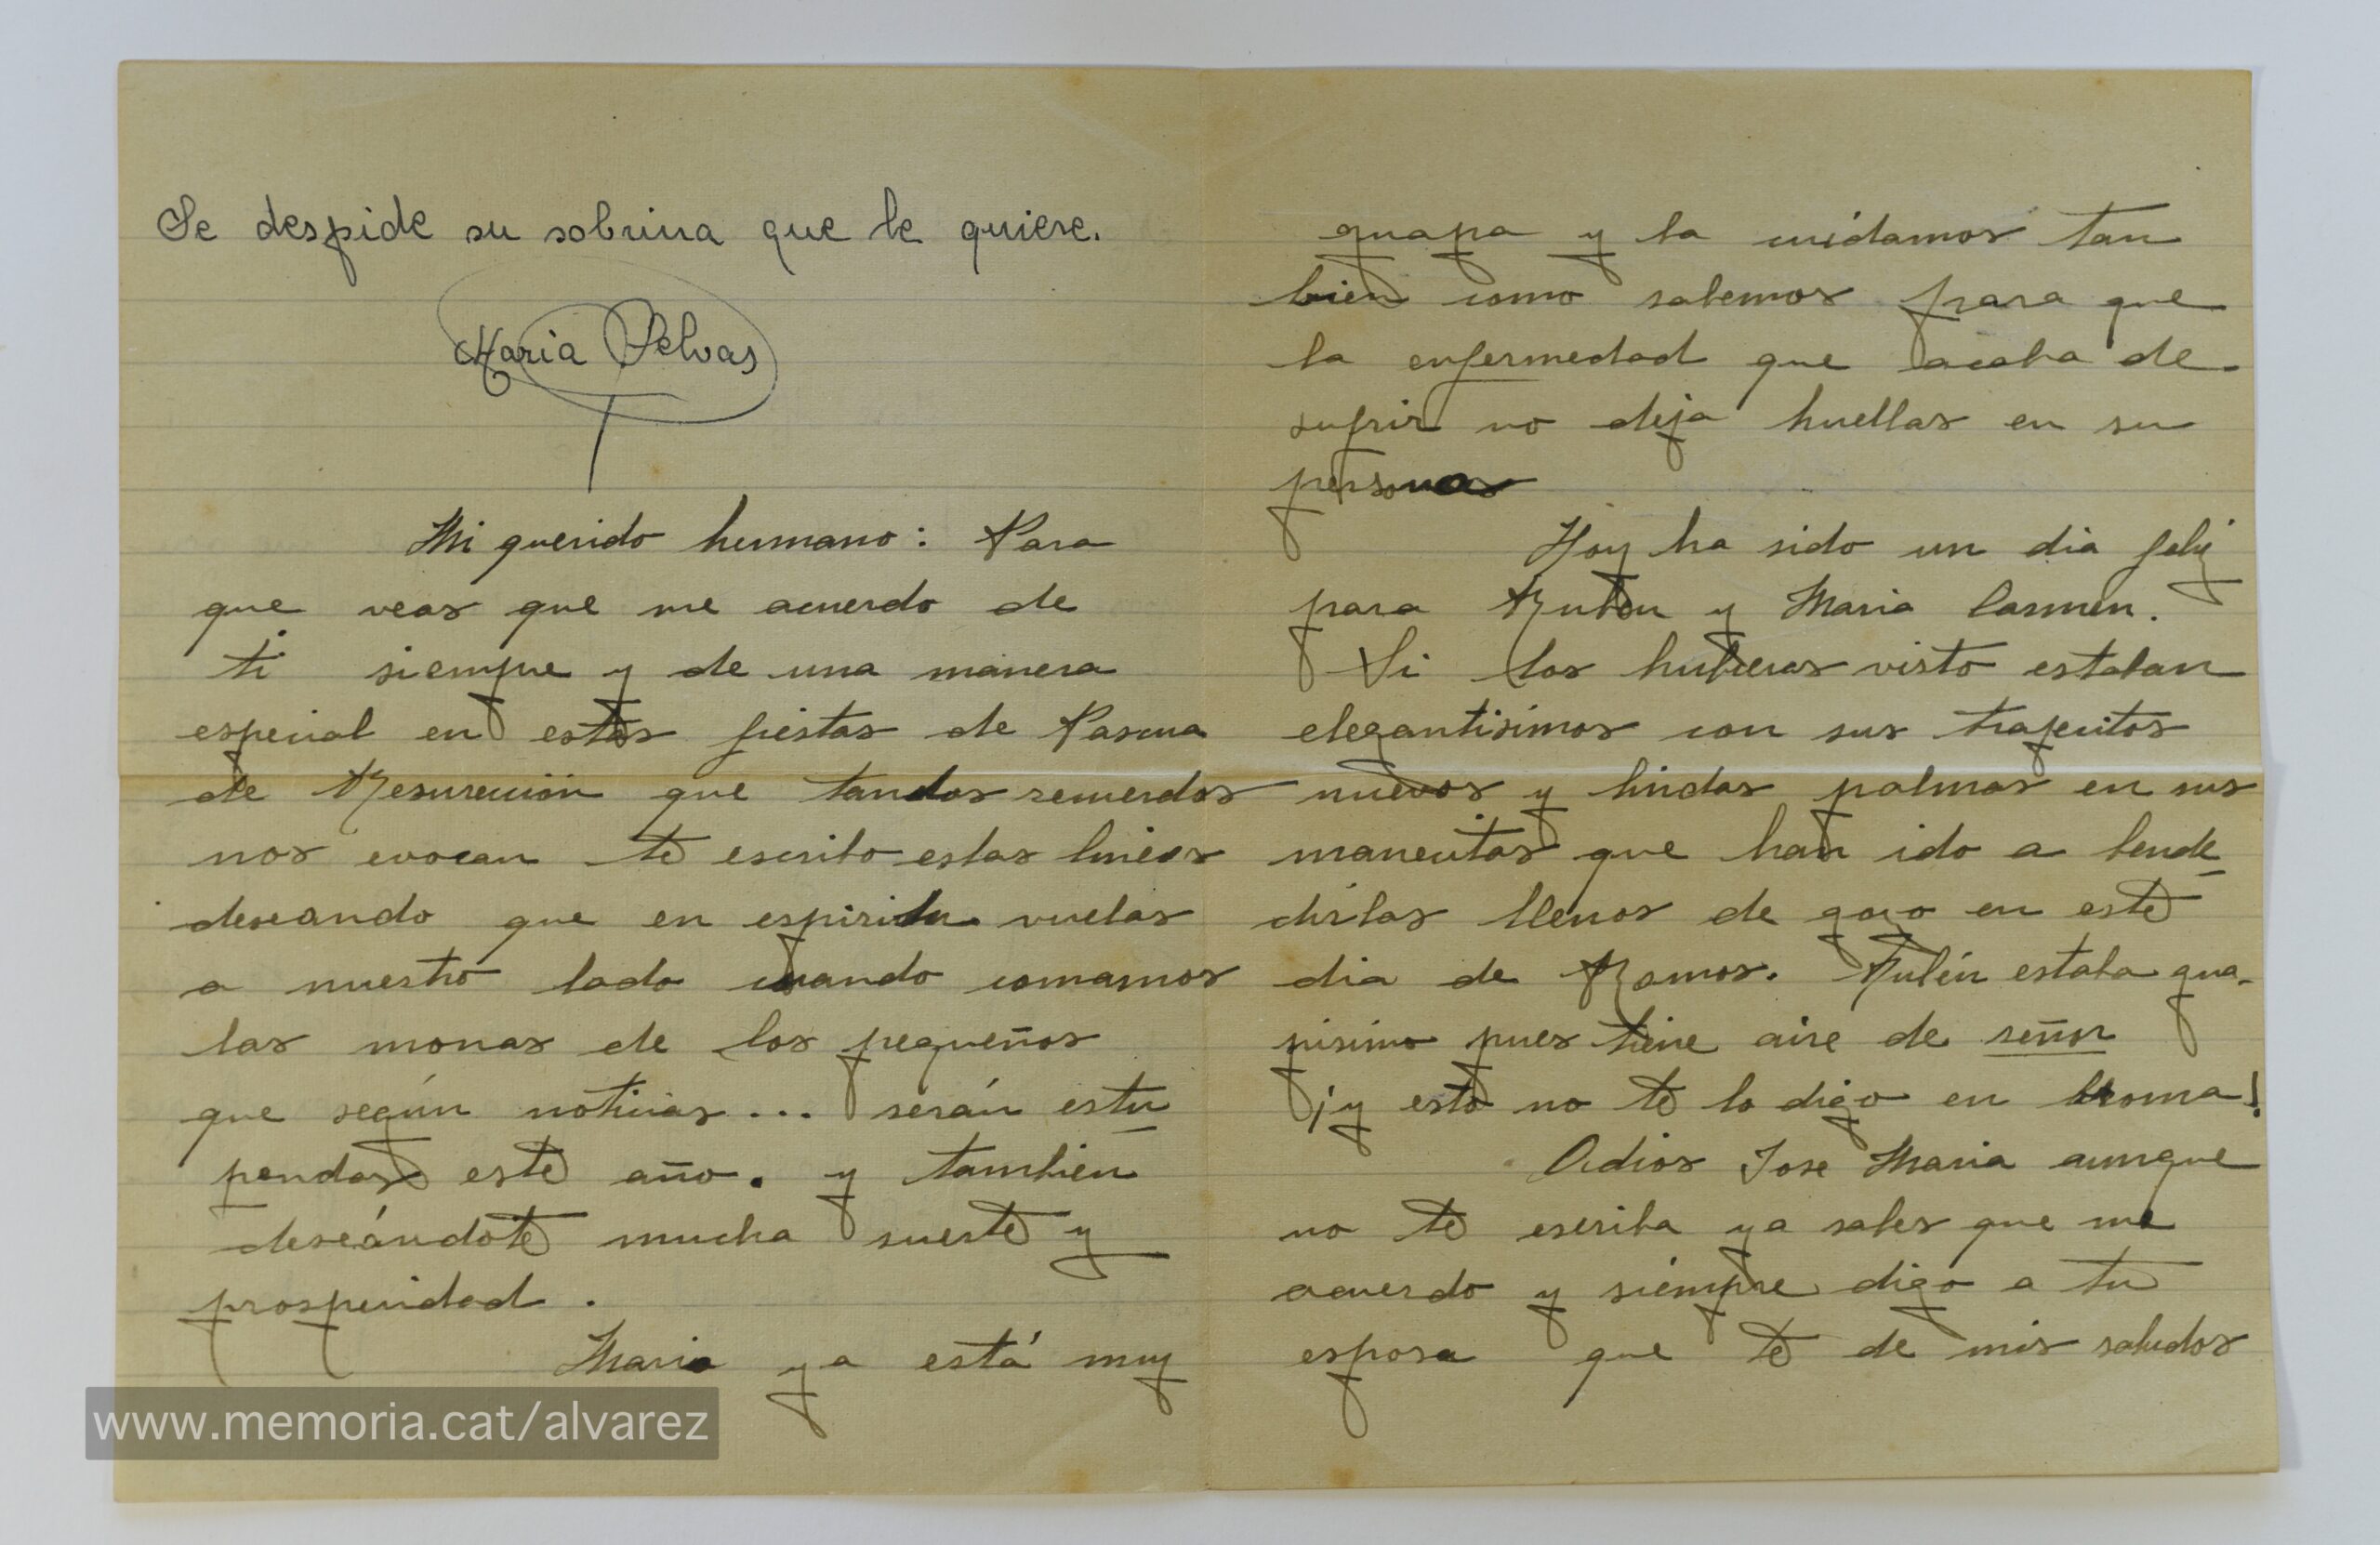 Se despide su sobrina que le quiere.
Maria Selvas
Mi querido hermano: Para
que veas que me acuerdo de
ti siempre y de una manera
especial en estas fiestas de Pascua
de Resurección que tandos recuerdos
nos evocan te escribo estas lineas
deseando que en espiritu vuelas
a nuestro lado cuando comamos
las monas de los pequeños
que según noticias... serán estu
pendas este año. y tambien
deseándote mucha suerte y
prosperidad.
Maria ya está muy
guapa y la cuidamos tan
bien como sabemos para que
la enfermedad que acaba de
sufrir no deja huellas en su
persona
Hoy ha sido un dia feliz
para Ruben y Maria Carmen.
Si los hubieras visto estaban
elegantisimos con sus trajecitos
nuevos y lindas palmas en sus
manecitas que han ido a bende
cirlas llenos de gozo en este
dia de Ramos. Rubén estaba gua-
pisimo pues tiene aire de señor
¡y esto no te lo digo en broma!
Adios Jose Maria aunque
no te escriba ya sabes que me
acuerdo y siempre digo a tu
esposa que te de mis saludos
www.memoria.cat/alvarez